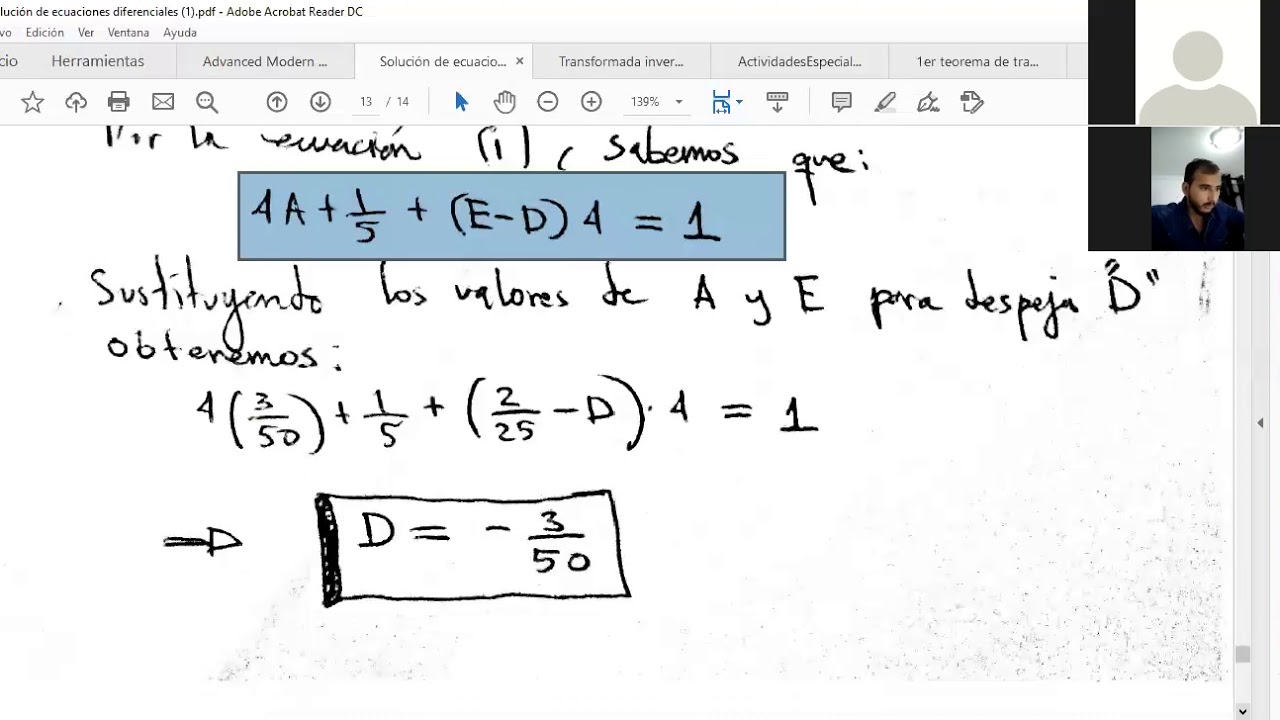 lución de ecuaciones diferenciales (1).pdf - Adobe Acrobat Reader DC
vo Edición Ver Ventana Ayuda
cio Herramientas Advanced Modern ... Solución de ecuacio... × Transformada inver... ActividadesEspecial... 1er teorema de tra...
13 / 14 139%
Por la ecuación (1), sabemos que:
4A + 1/5 + (E-D) 4 = 1
Sustituyendo los valores de A y E para despeja "D"
obtenemos:
4(3/50) + 1/5 + (2/25 - D) · 4 = 1
⇒ D = - 3/50